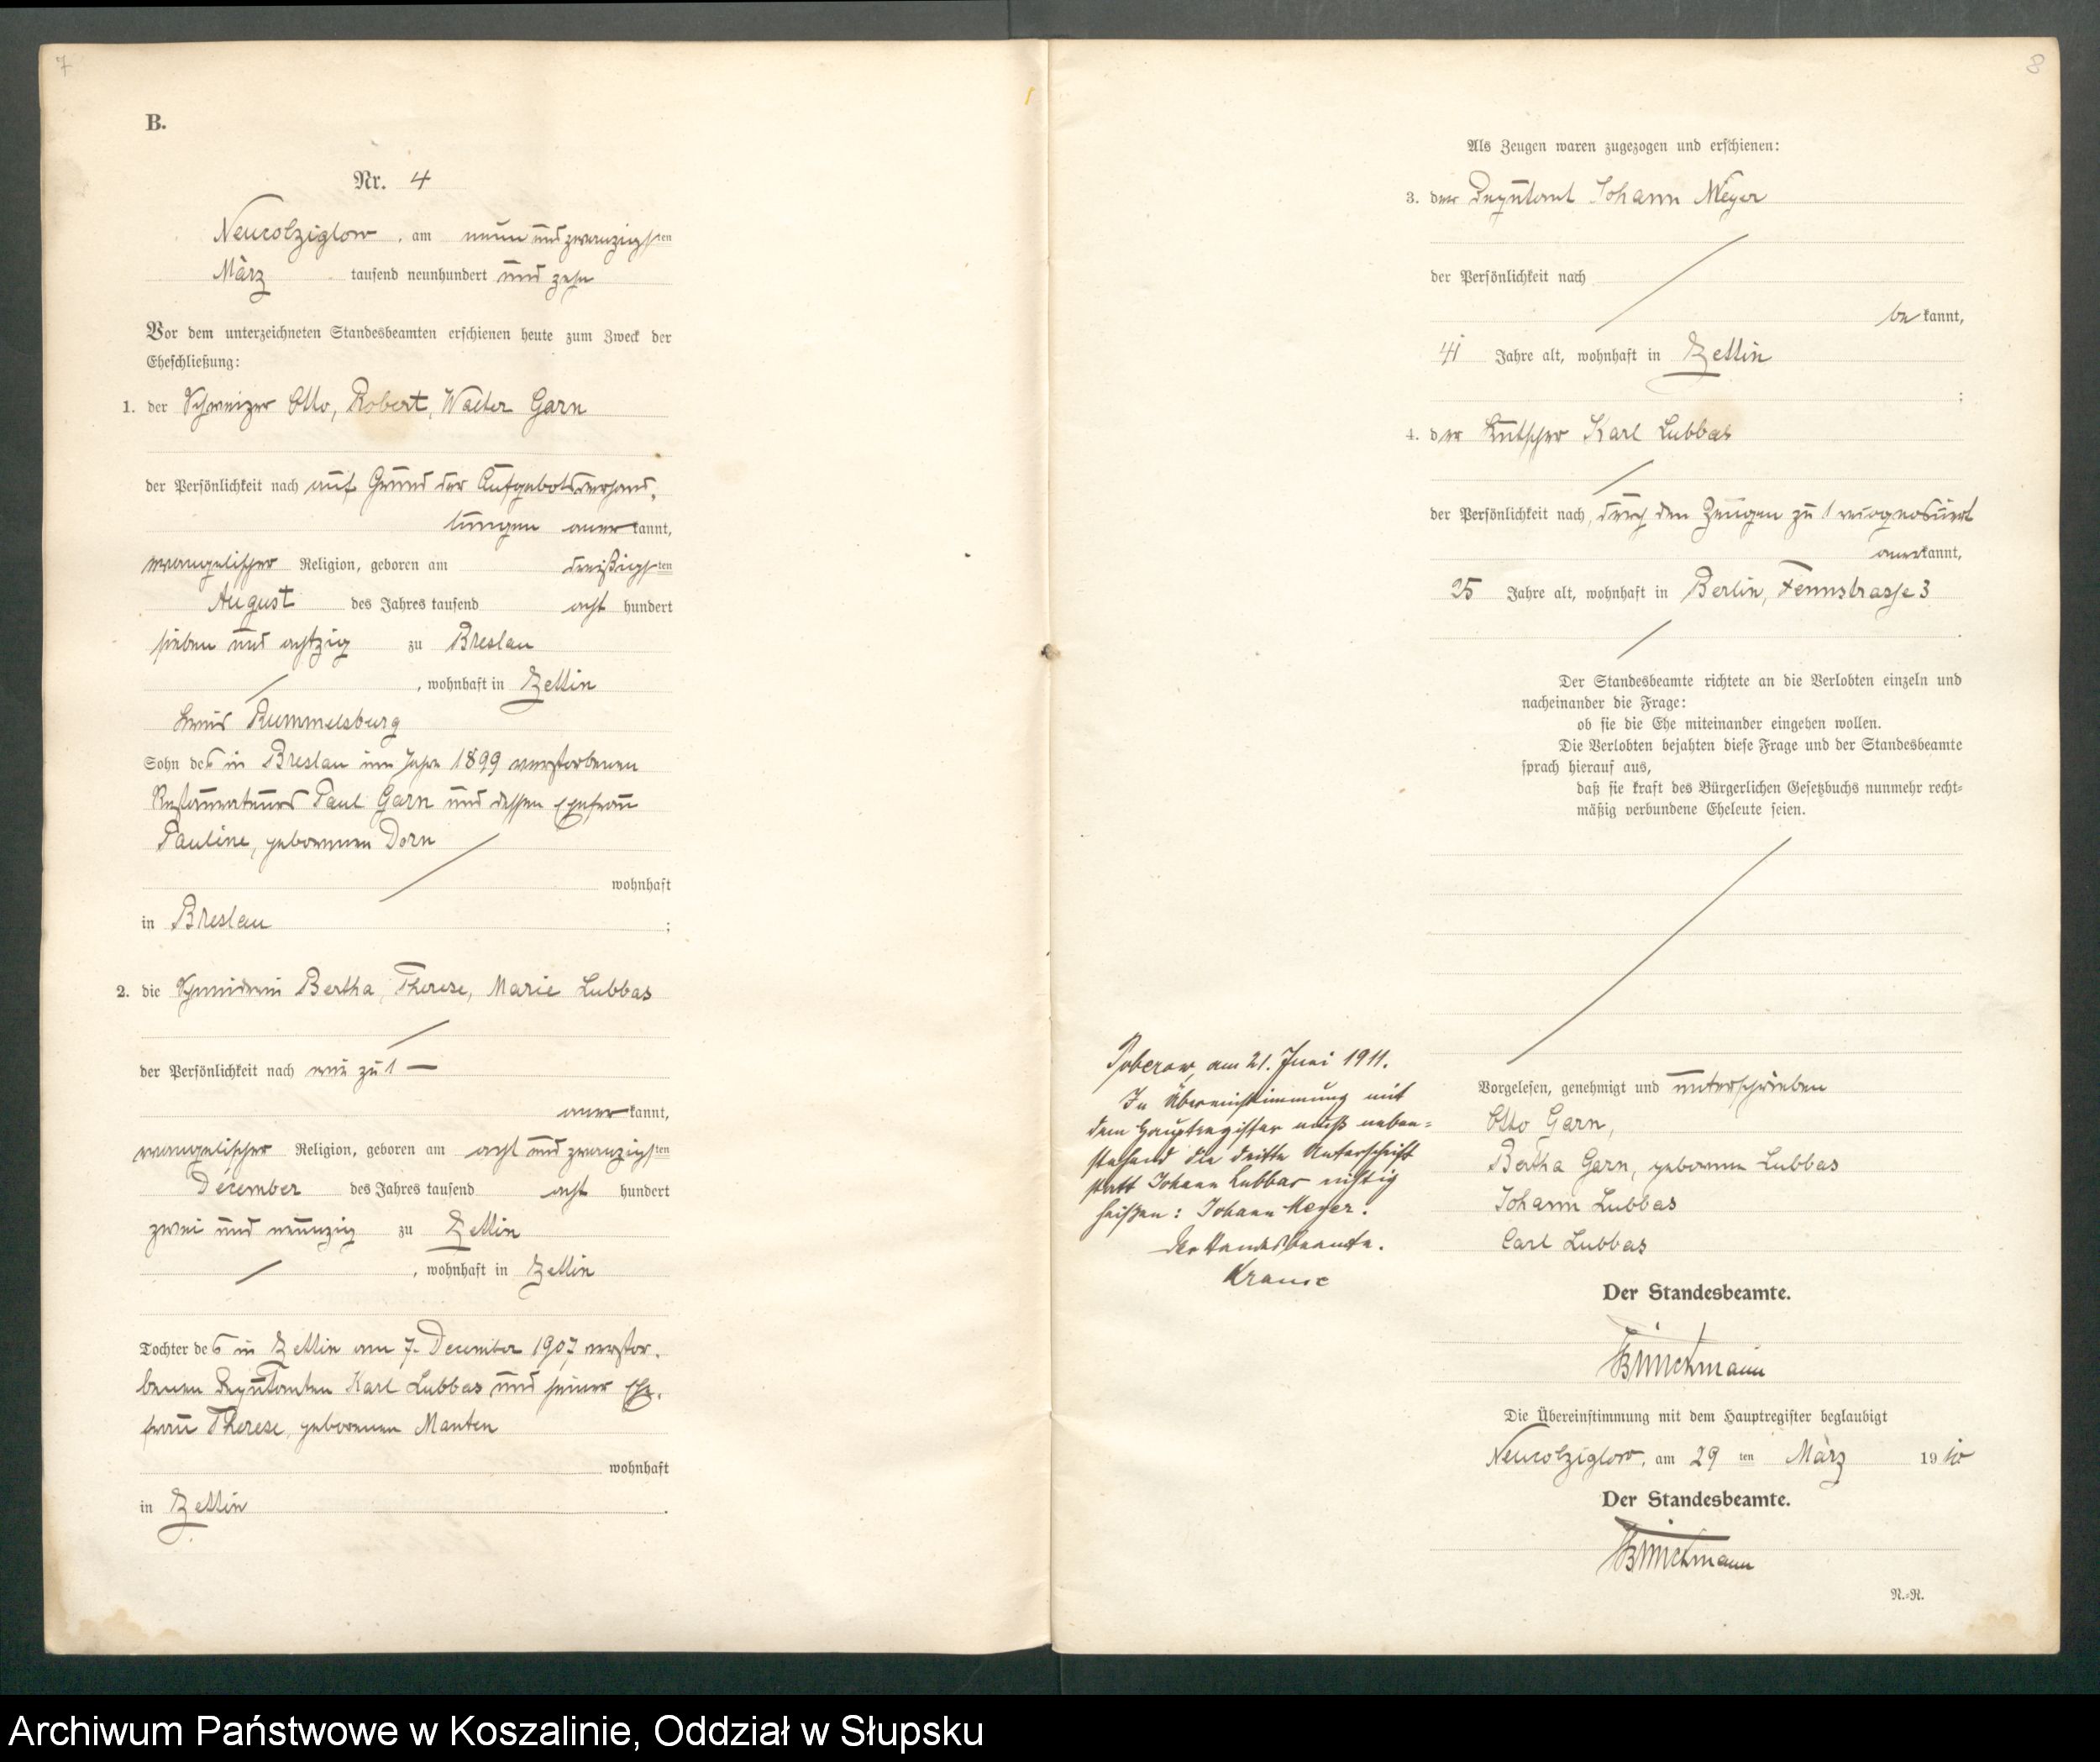 7
B.
Nr. 4
Neucolziglow, am neun und zwanzigsten
März tausend neunhundert und zehn
Vor dem unterzeichneten Standesbeamten erschienen heute zum Zweck der
Eheschließung:
1. der Schweizer Otto, Robert, Walter Garn
der Persönlichkeit nach auf Grund der Aufgebotsverhand-
lungen anerkannt,
evangelischer Religion, geboren am dreißigsten
August des Jahres tausend acht hundert
sieben und achtzig zu Breslau
, wohnhaft in Zettin
Kreis Rummelsburg
Sohn des in Breslau im Jahre 1899 verstorbenen
Restaurateurs Paul Garn und dessen Ehefrau
Pauline, geborenen Dorn
wohnhaft
in Breslau ;
2. die Schneiderin Bertha, Therese, Marie Lubbas
der Persönlichkeit nach wie zu 1 —
anerkannt,
evangelischer Religion, geboren am acht und zwanzigsten
December des Jahres tausend acht hundert
zwei und neunzig zu Zettin
, wohnhaft in Zettin
Tochter des in Zettin am 7. December 1907 verstor-
benen Deputanten Karl Lubbas und seiner Ehe-
frau Therese, geborenen Manten
wohnhaft
in Zettin .
8
Als Zeugen waren zugezogen und erschienen:
3. der Deputant Johann Meyer
der Persönlichkeit nach
bekannt,
41 Jahre alt, wohnhaft in Zettin
;
4. der Kutscher Karl Lubbas
der Persönlichkeit nach, durch den Zeugen zu 1 recognosciert
anerkannt,
25 Jahre alt, wohnhaft in Berlin, Fennstrasse 3
.
Der Standesbeamte richtete an die Verlobten einzeln und
nacheinander die Frage:
ob sie die Ehe miteinander eingehen wollen.
Die Verlobten bejahten diese Frage und der Standesbeamte
sprach hierauf aus,
daß sie kraft des Bürgerlichen Gesetzbuchs nunmehr recht-
mäßig verbundene Eheleute seien.
Vorgelesen, genehmigt und unterschrieben
Otto Garn,
Bertha Garn, geborene Lubbas
Johann Lubbas
Carl Lubbas
Der Standesbeamte.
Brinckmann
Die Übereinstimmung mit dem Hauptregister beglaubigt
Neucolziglow, am 29 ten März 1910
Der Standesbeamte.
Brinckmann
N.-R.
Poberow, am 21. Juni 1911.
In Übereinstimmung mit
dem Hauptregister muß neben-
stehend die dritte Unterschrift
statt Johann Lubbas richtig
heißen: Johann Meyer.
Der Standesbeamte.
Krause
Archiwum Państwowe w Koszalinie, Oddział w Słupsku